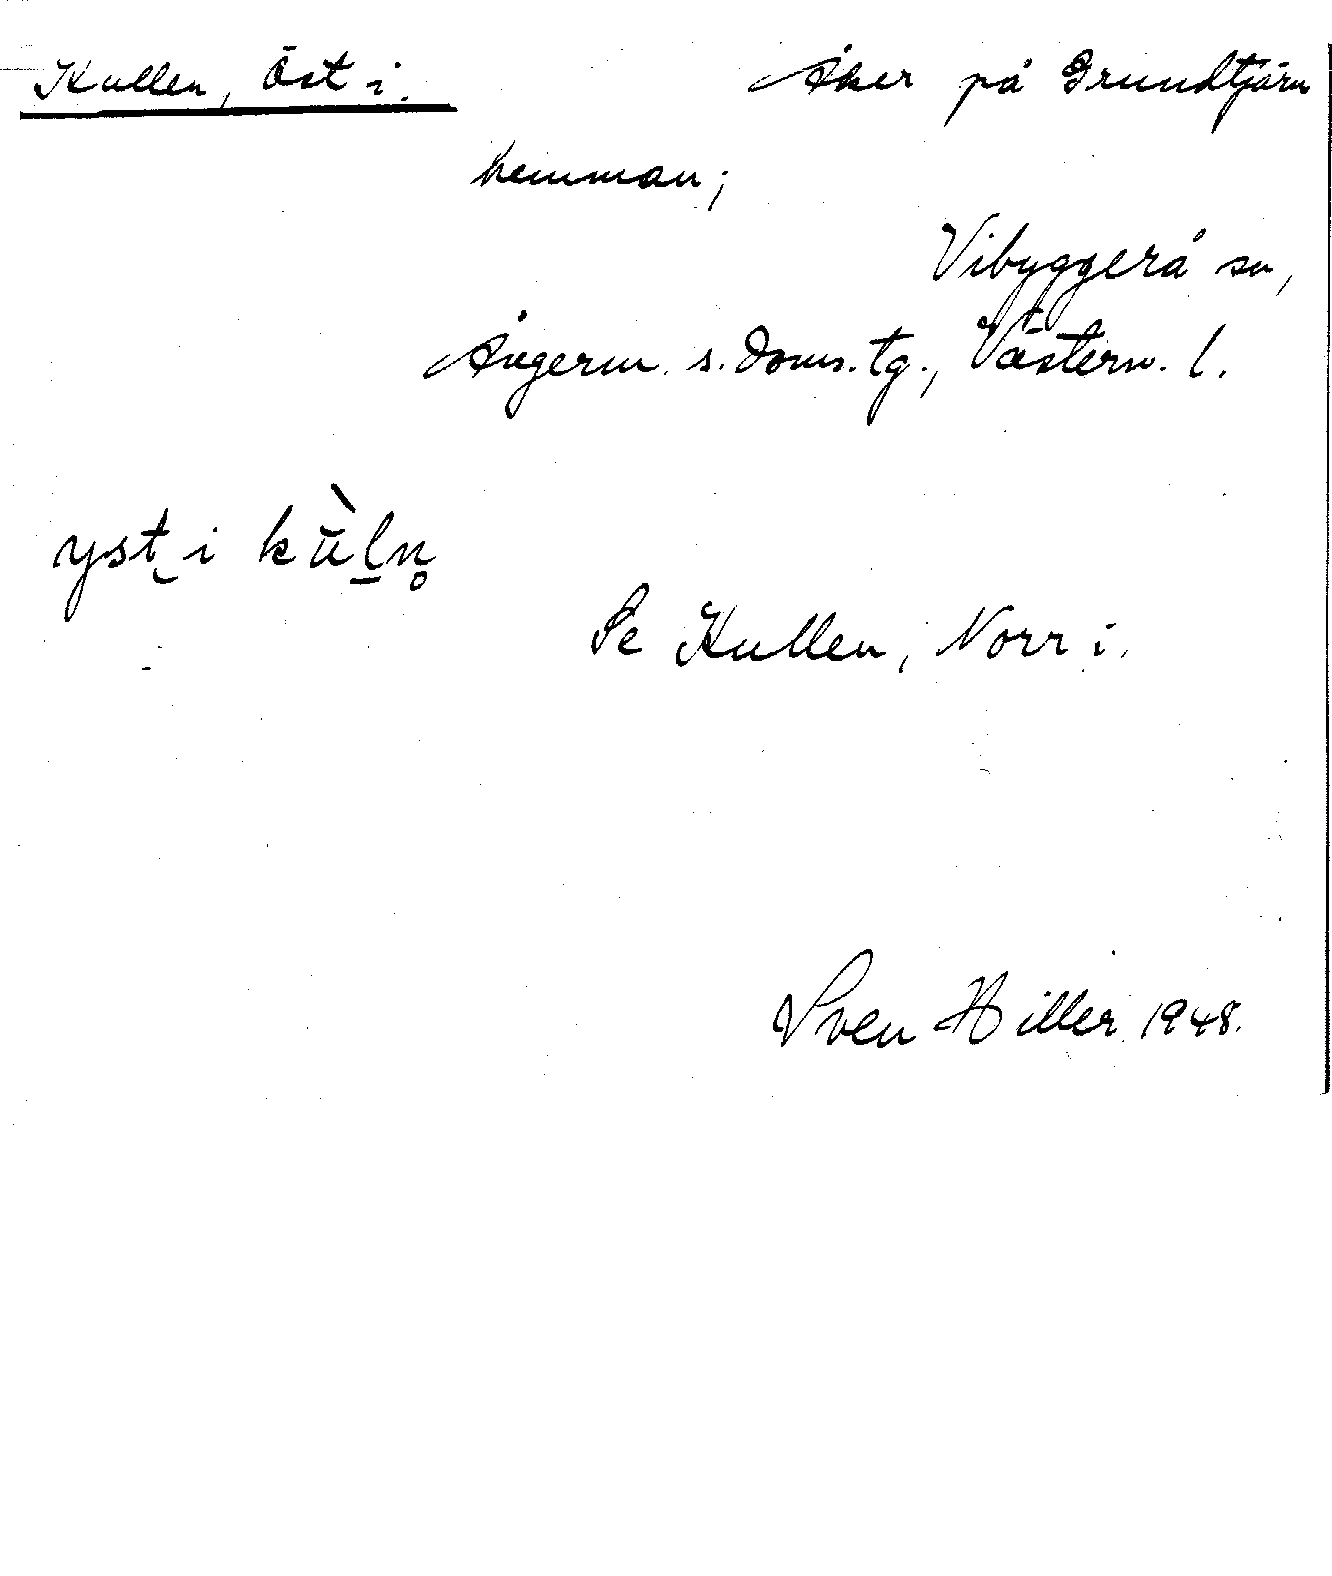 Kullen, Öst i. Åker på Grundtjärn
hemman;
Vibyggerå sn,
Ångerm. s. doms. tg., Västern. l.
yst i kùl̠n̥
Se Kullen, Norr i.
Sven Hiller 1948.